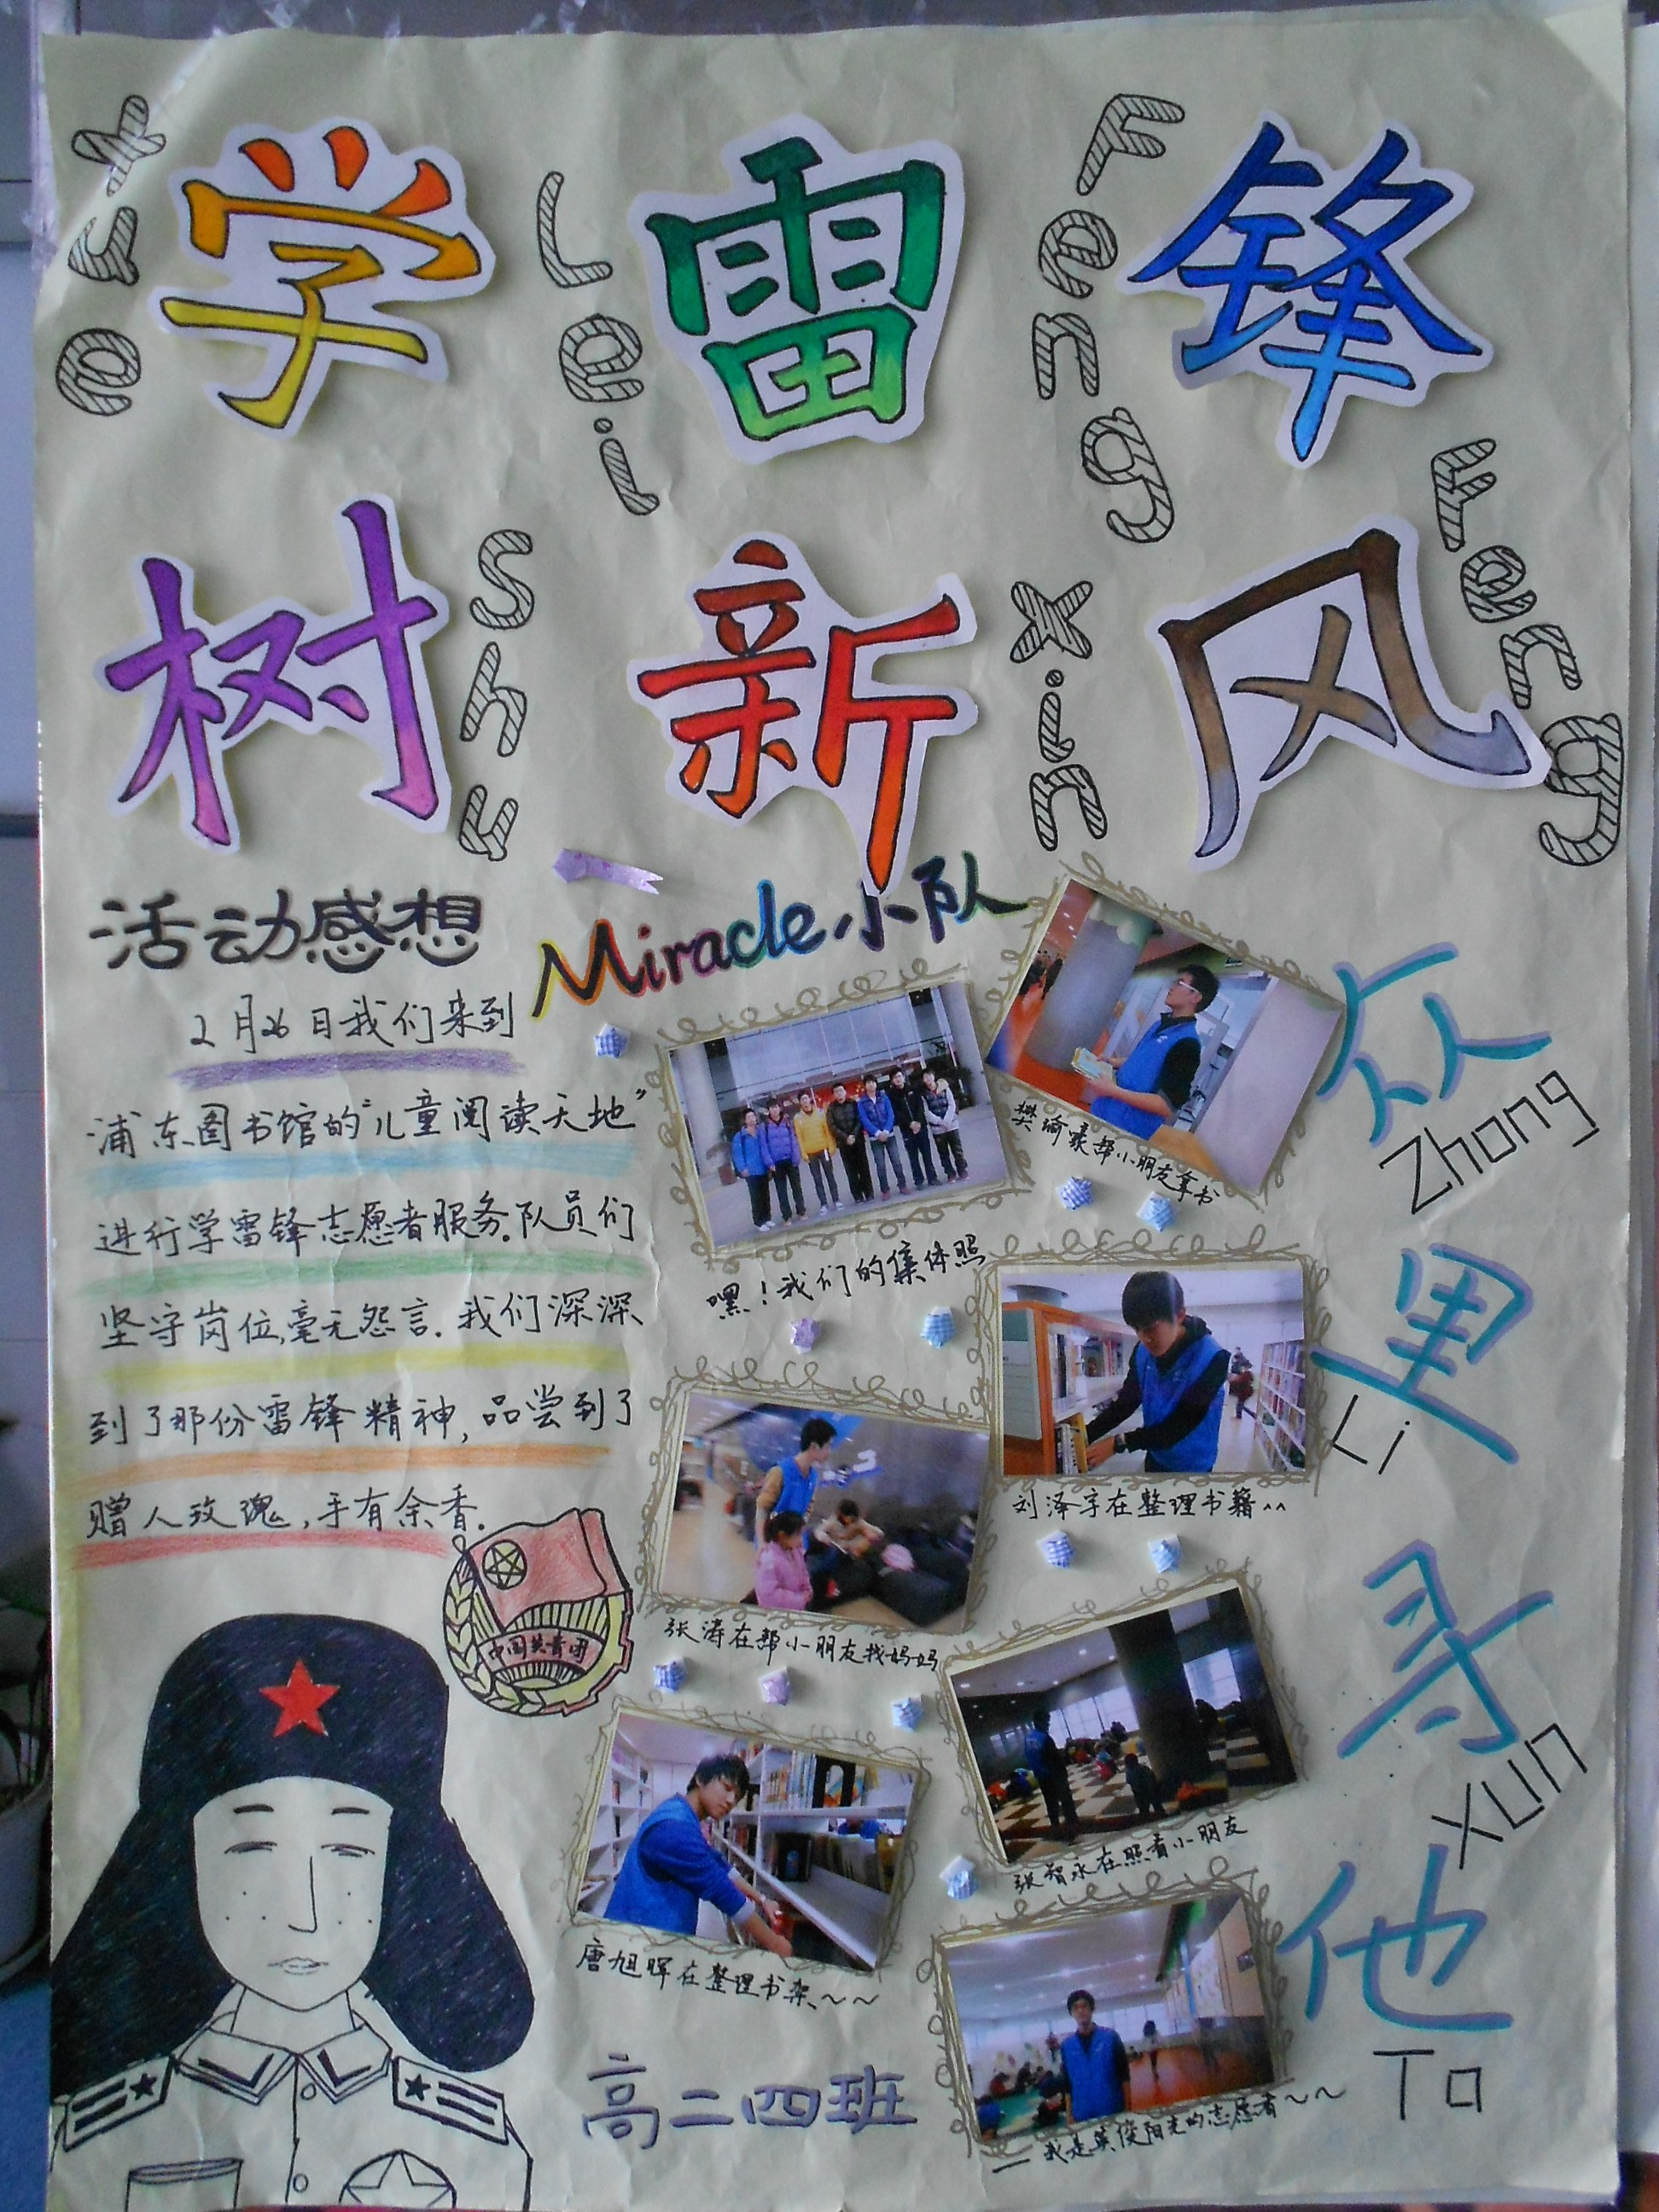 Xue
学
Lei
雷
Feng
锋
树
Shu
新
Xin
风
Feng
活动感想
2月26日我们来到
浦东图书馆的“儿童阅读天地”
进行学雷锋志愿者服务.队员们
坚守岗位,毫无怨言.我们深深
到了那份雷锋精神,品尝到了
赠人玫瑰,手有余香.
中国共青团
Miracle小队
嘿!我们的集体照
樊瑜豪帮小朋友拿书
刘泽宇在整理书籍^^
张涛在帮小朋友找妈妈
张智永在照看小朋友
唐旭晖在整理书架~~
—我是英俊阳光的志愿者~~
高二四班
众
Zhong
里
Li
寻
Xun
他
Ta